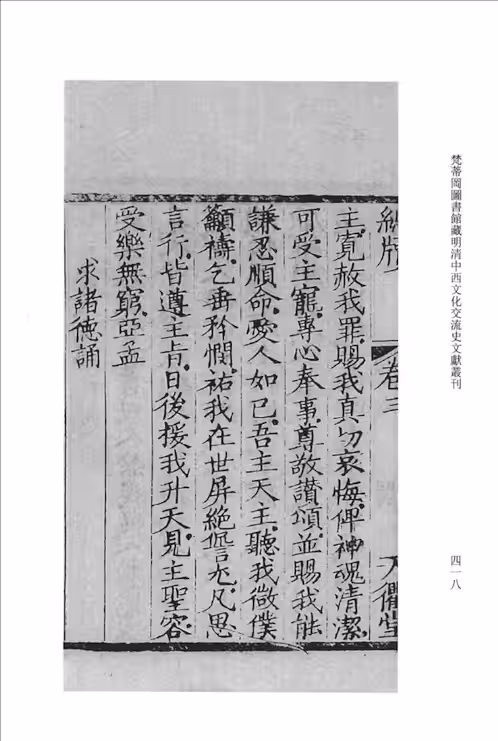 梵蒂岡圖書館藏明清中西文化交流史文獻叢刊
四一八
總牘
卷三
天衢堂
主寬赦我罪賜我真切哀悔俾神魂清潔
可受主寵專心奉事尊敬讚頌並賜我能
謙忍順命愛人如己吾主天主聽我微僕
籲禱乞垂矜憫祐我在世屏絕愆尤凡思
言行皆遵主旨日後援我升天見主聖容
受樂無窮亞孟
求諸德誦